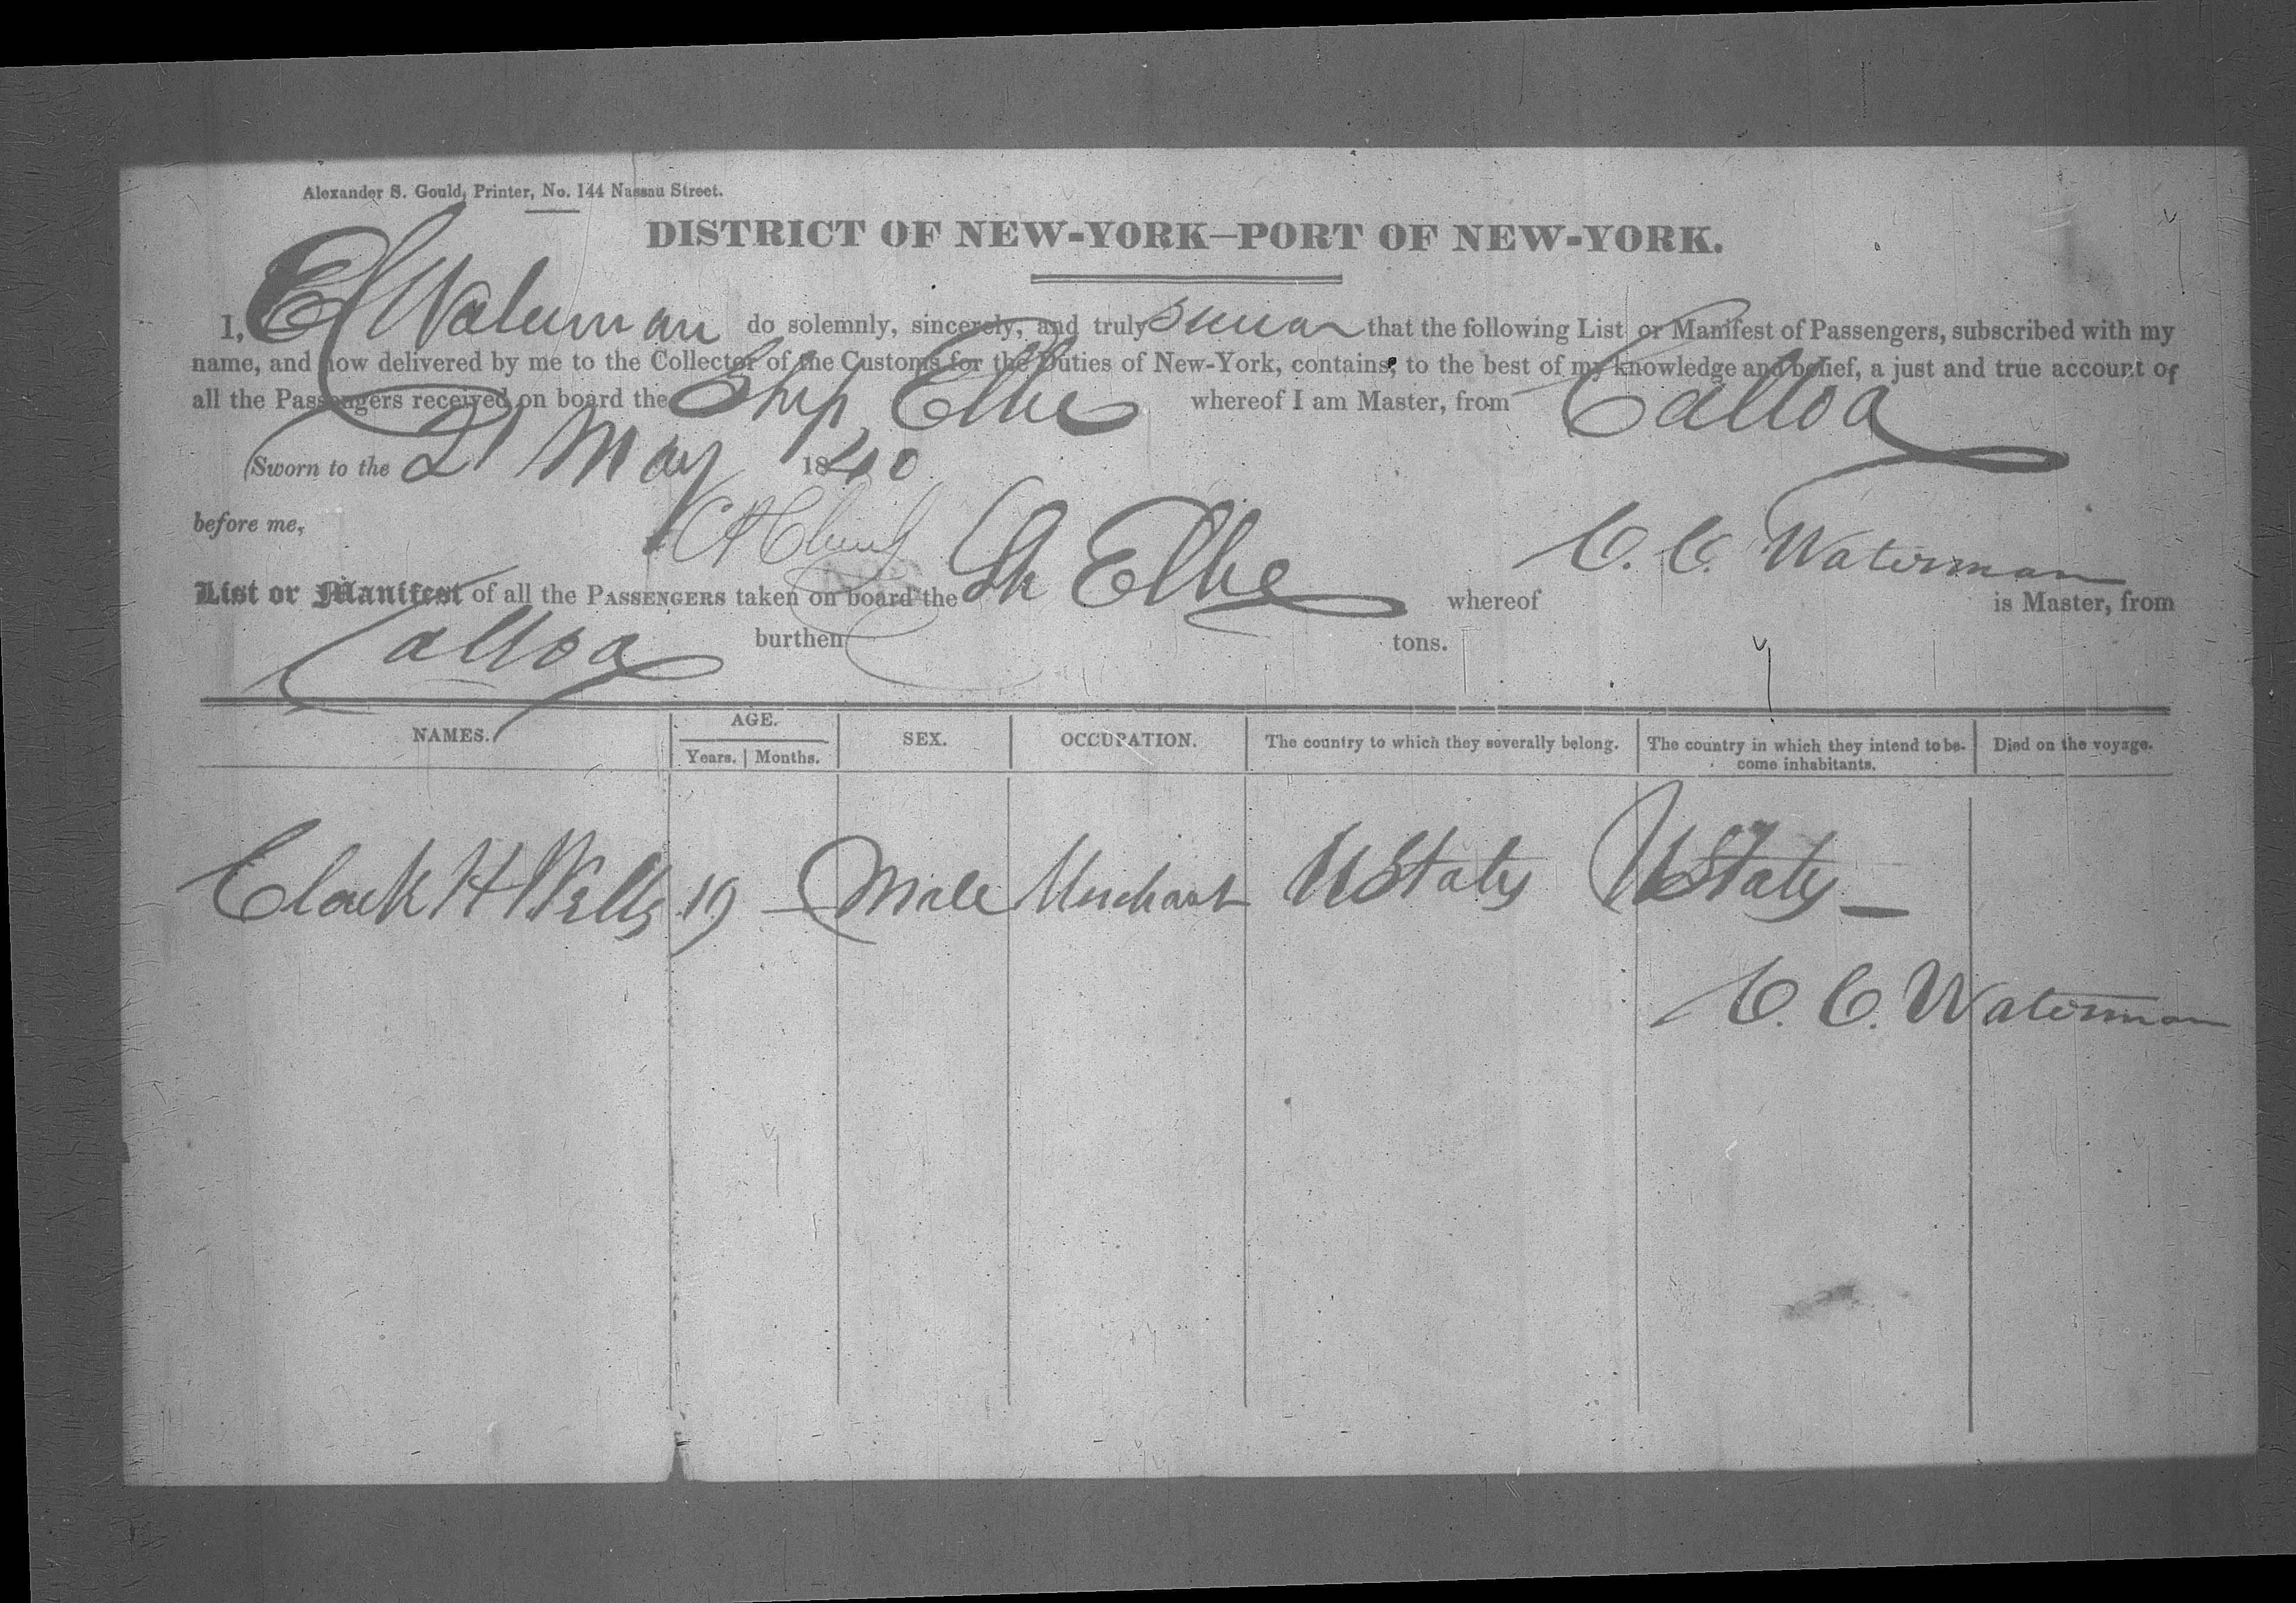 Alexander S. Gould, Printer, No. 144 Nassau Street.
DISTRICT OF NEW-YORK—PORT OF NEW-YORK.
I, Waterman do solemnly, sincerely, and truly swear that the following List or Manifest of Passengers, subscribed with my
name, and now delivered by me to the Collector of the Customs for the Duties of New-York, contains, to the best of my knowledge and belief, a just and true account of
all the Passengers received on board the Ship Elbe whereof I am Master, from Calloa
Sworn to the 21 May 1840
before me, C. C. Waterman
List or Manifest of all the PASSENGERS taken on board the Sh Elbe whereof is Master, from
Calloa burthen tons.
NAMES. AGE. Years. Months. SEX. OCCUPATION. The country to which they severally belong. The country in which they intend to be- come inhabitants. Died on the voyage.
Clark H Wells 19 — Male Merchant U States U States —
C. C. Waterman